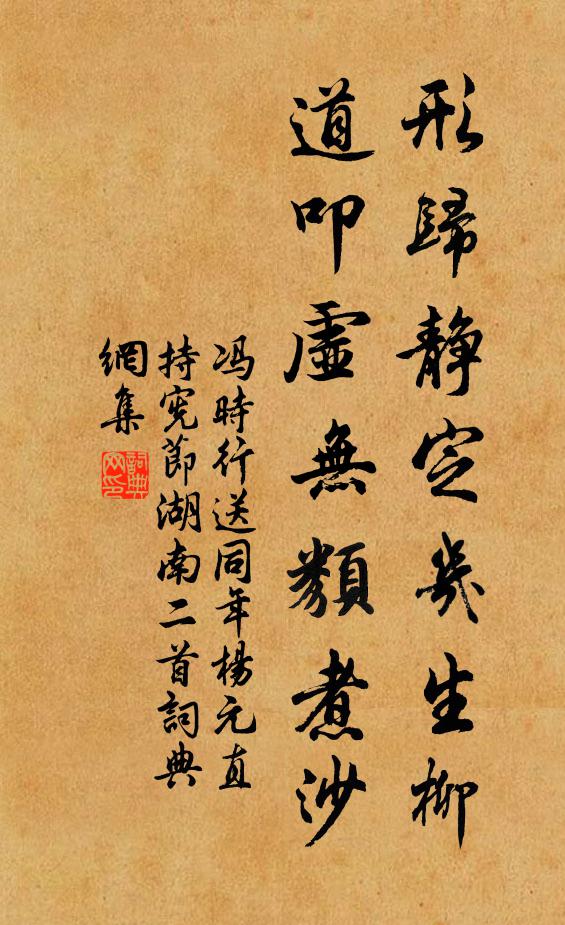 形歸静定幾生柳
道叩虛無類煮沙
冯時行送同年楊元直
持宪節湖南二首詞典
網集
詞典網印